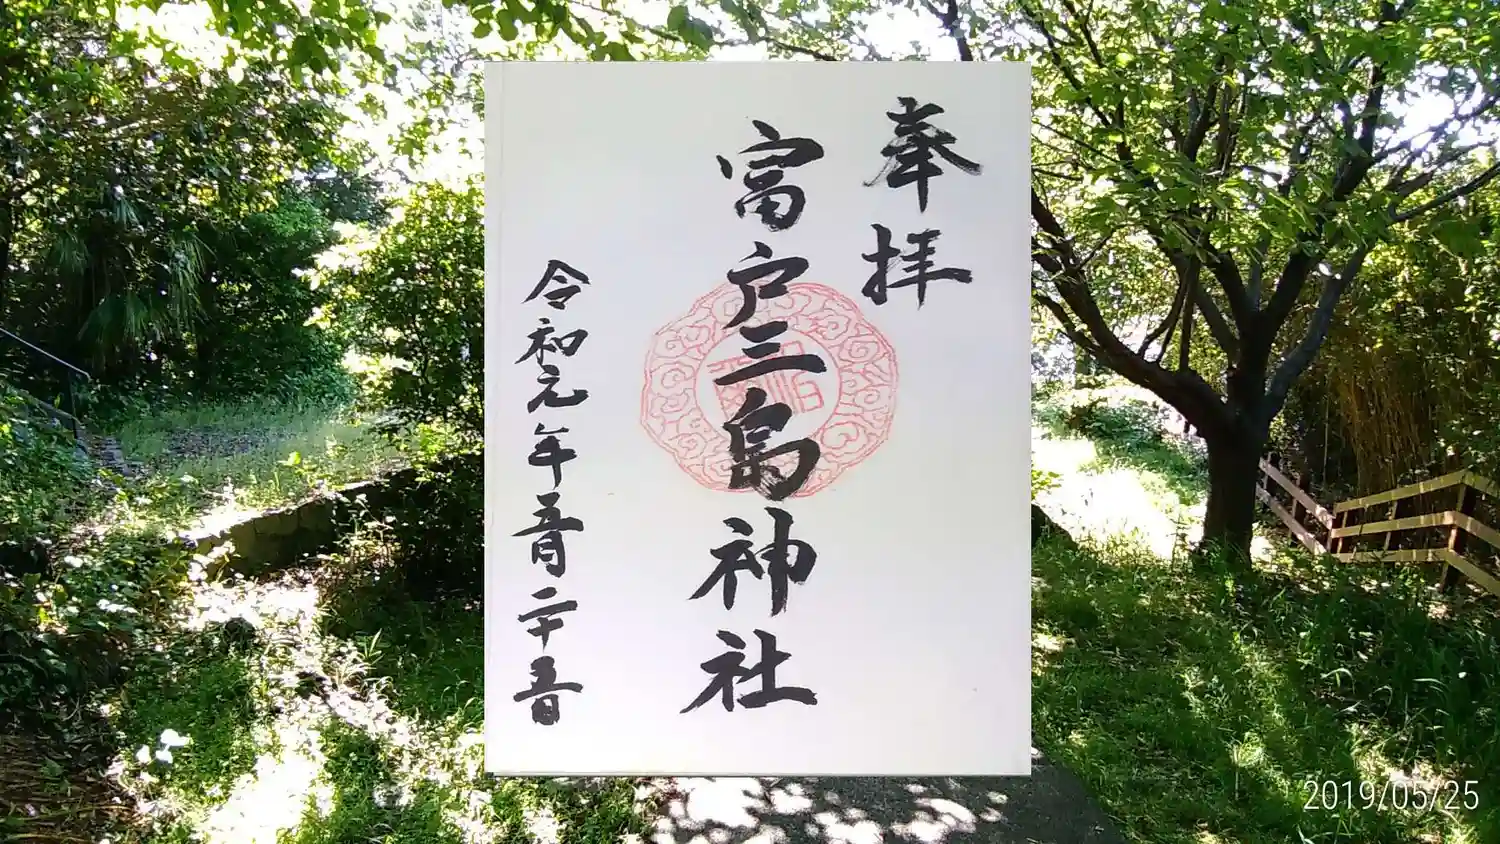 奉拝
富戸三島神社
令和元年五月二十五日
2019/05/25